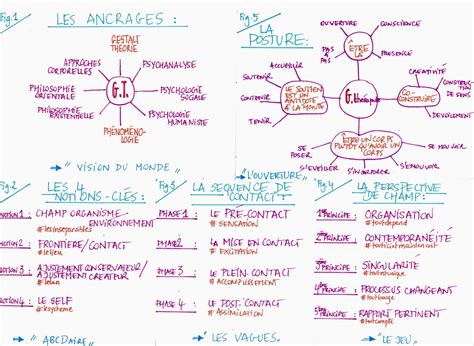 Fig.1
LES ANCRAGES :
GESTALT
THÉORIE
APPROCHES
CORPORELLES
PSYCHANALYSE
PHILOSOPHIE
ORIENTALE
G.T.
PSYCHOLOGIE
SOCIALE
PHILOSOPHIE
EXISTENTIELLE
PSYCHOLOGIE
HUMANISTE
PHÉNOMÉNO-
LOGIE
"VISION DU MONDE"
Fig.5
LA
POSTURE:
OUVERTURE
CONSCIENCE
PAS
À
PAS
ÊTRE
LÀ
PRESENCE
ACCUEILLIR
SOUTENIR
CONTENIR
TENIR
LE SOUTIEN
EST UN
ANTIDOTE
À LA HONTE
CRÉATIVITÉ
CONSTRUCTION
DE SENS
CO-
CONSTRUIRE
DEVOILEMENT
ÊTRE UN CORPS
PLUTÔT QU'AVOIR UN
CORPS
SE POSER
S'EVEILLER
S'INCORPORER
SE MOUVOIR
S'EMOUVOIR
"L'OUVERTURE"
Fig.2
LES 4
NOTIONS-CLÉS:
NOTION1 :
CHAMP ORGANISME-
ENVIRONNEMENT
#lesinseparables
NOTION 2 :
FRONTIÈRE/CONTACT
#lelieu
NOTION3 :
AJUSTEMENT CONSERVATEUR/
AJUSTEMENT CREATEUR
#lelien
NOTION4 :
LE SELF
"ABCDaire"
Fig 3
LA SEQUENCE DE
CONTACT:
PHASE1 :
LE PRE-CONTACT
#SENSATION
PHASE2 :
LA MISE EN CONTACT
#EXCITATION
PHASE 3 :
LE PLEIN-CONTACT
#ACCOMPLISSEMENT
PHASE 4 :
LE POST-CONTACT
#Assimilation
"LES VAGUES."
Fig 4
LA PERSPECTIVE
DE CHAMP:
PRINCIPE :
ORGANISATION
#toutdepend
PRINCIPE :
CONTEMPORANÉITÉ
#touticietmaintenant
PRINCIPE :
SINGULARITÉ
PRINCIPE :
PROCESSUS CHANGEANT
#toutchange
PRINCIPE :
RAPPORT PERTINENT
#toutcompte
"LE JEU"